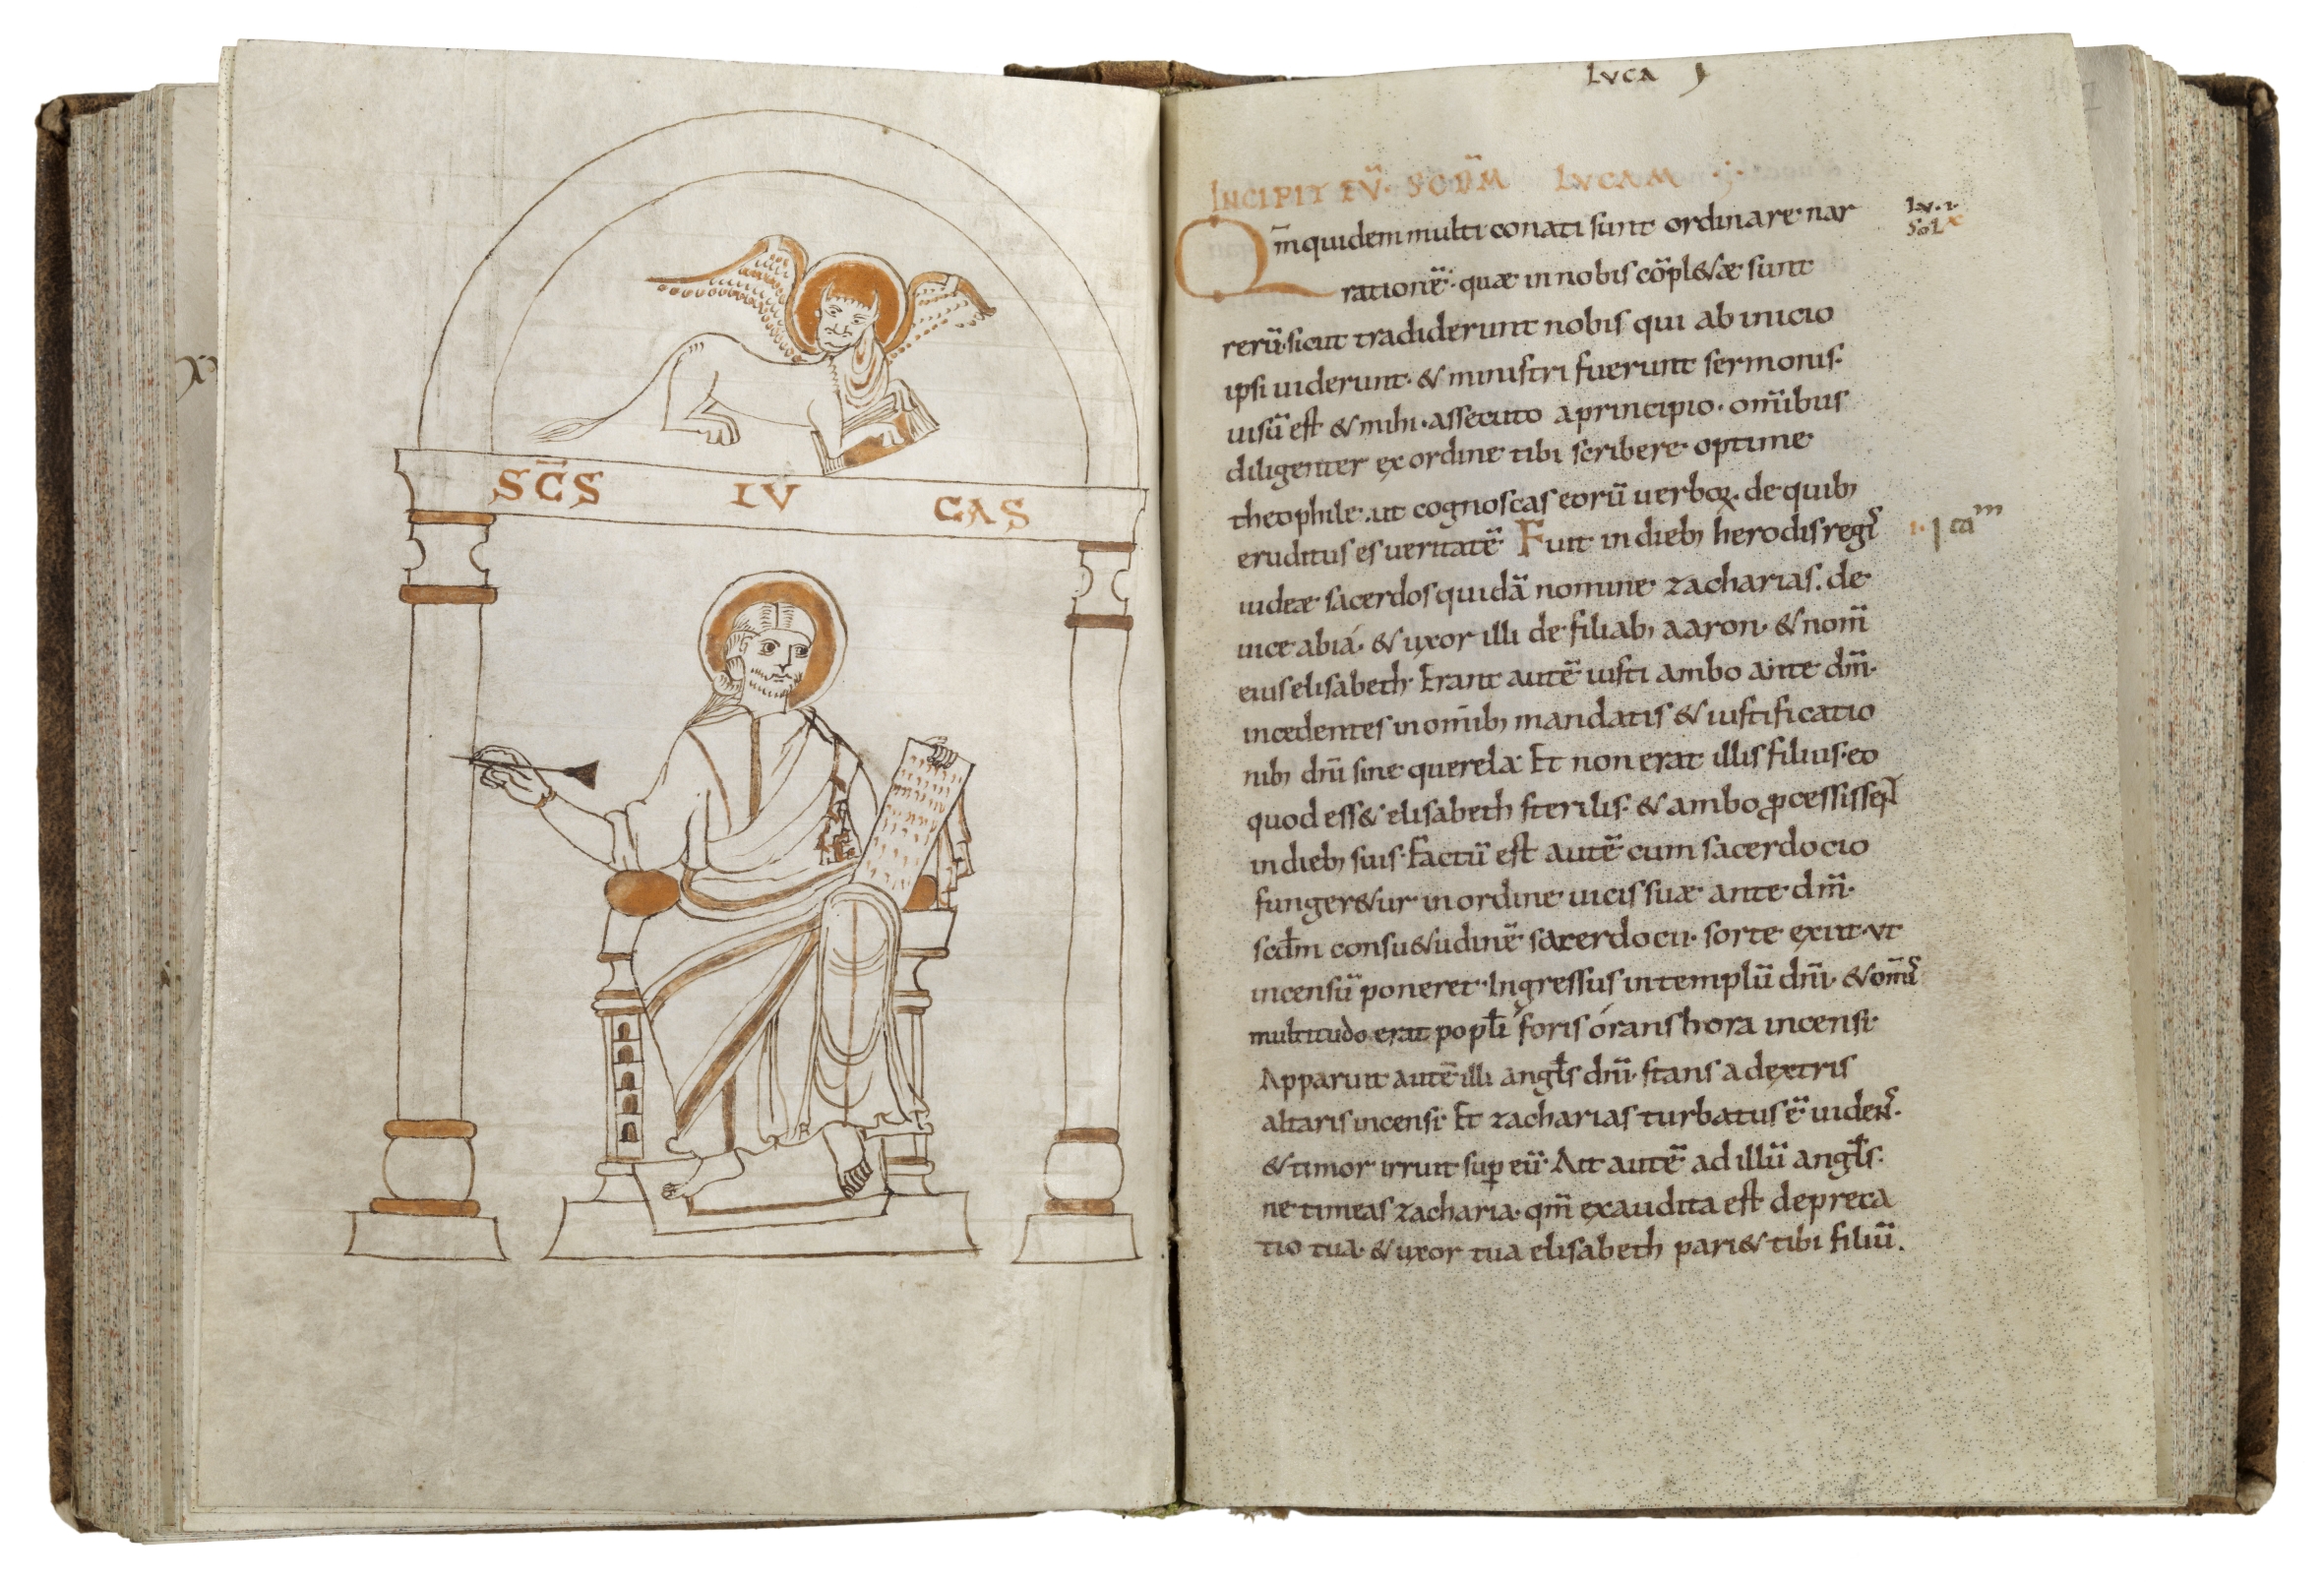 SC̄S LV CAS
LVCA
INCIPIT EV̄. SCD̄M LVCAM
Qm̄ quidem multi conati sunt ordinare nar
rationē. quæ in nobis cōpl&æ sunt
rerū. sicut tradiderunt nobis qui ab inicio
ipsi uiderunt. & ministri fuerunt sermonis.
uisū est & mihi. assecuto a principio. om̄ibus
diligenter ex ordine tibi scribere optime
theophile. ut cognoscas eorū uerboꝝ. de quib;
eruditus es ueritatē. Fuit in dieb; herodis regis
iudeæ sacerdos quidā nomine zacharias. de
uice abiá. & uxor illi de filiab; aaron. & nom̄
eius elisabeth. Erant autē iusti ambo ante dm̄.
incedentes in om̄ib; mandatis & iustificatio
nib; dn̄i sine querela. Et non erat illis filius. eo
quod ess& elisabeth sterilis. & ambo ꝓcessissent
in dieb; suis. Factū est autē cum sacerdocio
funger&ur in ordine uicis suæ ante dm̄.
scd̄m consu&udinē sacerdocii. sorte exiit. vt
incensū poneret. Ingressus in templū dn̄i. & om̄is
multitudo erat popłi foris órans hora incensi.
Apparuit autē illi angłs dn̄i. stans a dextris
altaris incensi. Et zacharias turbatus ē uidens.
& timor irruit suꝑ eū. Ait autē ad illū angłs.
ne timeas zacharia. qm̄ exaudita est depreca
tio tua. & uxor tua elisabeth pari& tibi filiū.